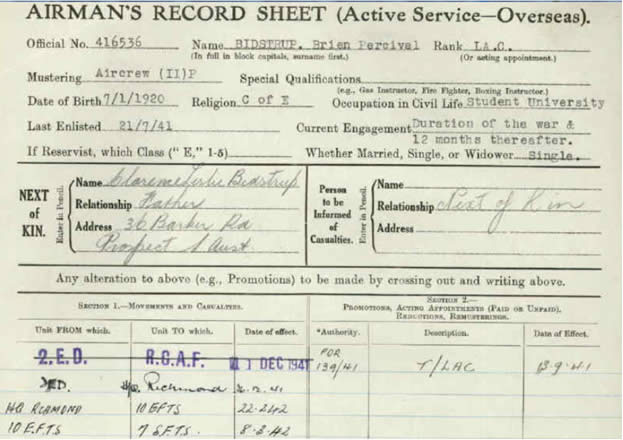 AIRMAN'S RECORD SHEET (Active Service—Overseas).
Official No. 416536 Name BIDSTRUP, Brien Percival Rank LA.C.
(In full in block capitals, surname first.) (Or acting appointment.)
Mustering Aircrew (II)P Special Qualifications
(e.g., Gas Instructor, Fire Fighter, Boxing Instructor.)
Date of Birth 7/1/1920 Religion C of E Occupation in Civil Life Student University
Last Enlisted 21/7/41 Current Engagement Duration of the war & 12 months thereafter.
If Reservist, which Class ("E," 1-5) Whether Married, Single, or Widower Single.
NEXT of KIN. Enter in Pencil.
Name Clarence Leslie Bidstrup
Relationship Father
Address 36 Barker Rd
Prospect S Aust.
Person to be Informed of Casualties. Enter in Pencil.
Name
Relationship Next of Kin
Address
Any alteration to above (e.g., Promotions) to be made by crossing out and writing above.
SECTION 1.—MOVEMENTS AND CASUALTIES.
SECTION 2.—
PROMOTIONS, ACTING APPOINTMENTS (PAID OR UNPAID), REDUCTIONS, REMUSTERINGS.
Unit FROM which. Unit TO which. Date of effect. *Authority. Description. Date of Effect.
2.E.D. R.C.A.F. 1 DEC 1941 POR 139/41 T/LAC 13.9.41
2ED. HQ Richmond 41
HQ RICMOND 10 EFTS 22.2.42
10 E.F.T.S 7 S.F.T.S. 8.3.42